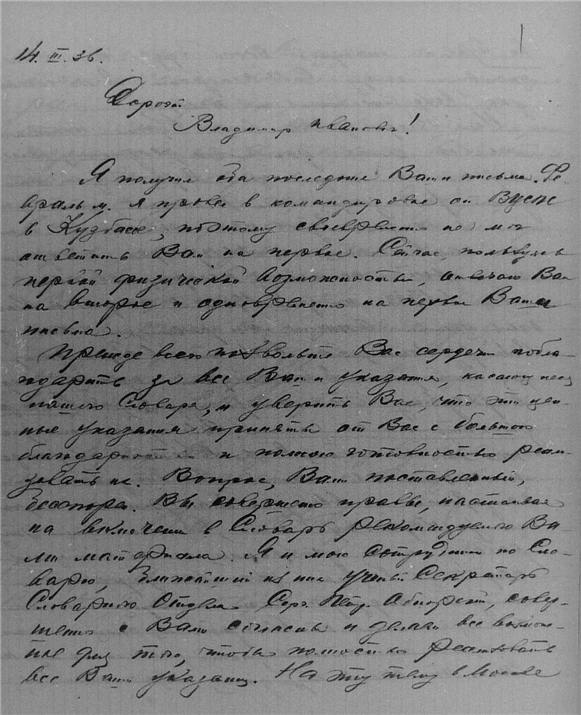 14. III. 36.
Дорогой
Владимир Иванович!
Я получил два последние Ваши письма. Фе-
враль м. я провел в командировке от
в Кузбасс, поэтому своевременно не мог
ответить Вам на первое. Сейчас, пользуясь
первой физической возможностью, отвечаю Вам
на второе и одновременно на первое Ваши
письма.
Прежде всего позвольте Вас сердечно побла-
годарить за все Ваши указания, касающиеся
нашего Словаря, и уверить Вас, что эти цен-
ные указания приняты от Вас с большою
благодарностью и полною готовностью реали-
зовать их. Вопрос, Вами поставленный,
бесспорен. Вы совершенно правы, настаивая
на включении в Словарь рекомендуемого Ва-
ми материала. Я и мои сотрудники по Сло-
варю, ближайший из них Ученый Секретарь
Словарного Отдела Серг. Петр. Обнорский, совер-
шенно с Вами согласны и делаем все возмож-
ное для того, чтобы полностью реализовать
все Ваши указания. На эту тему в Москве